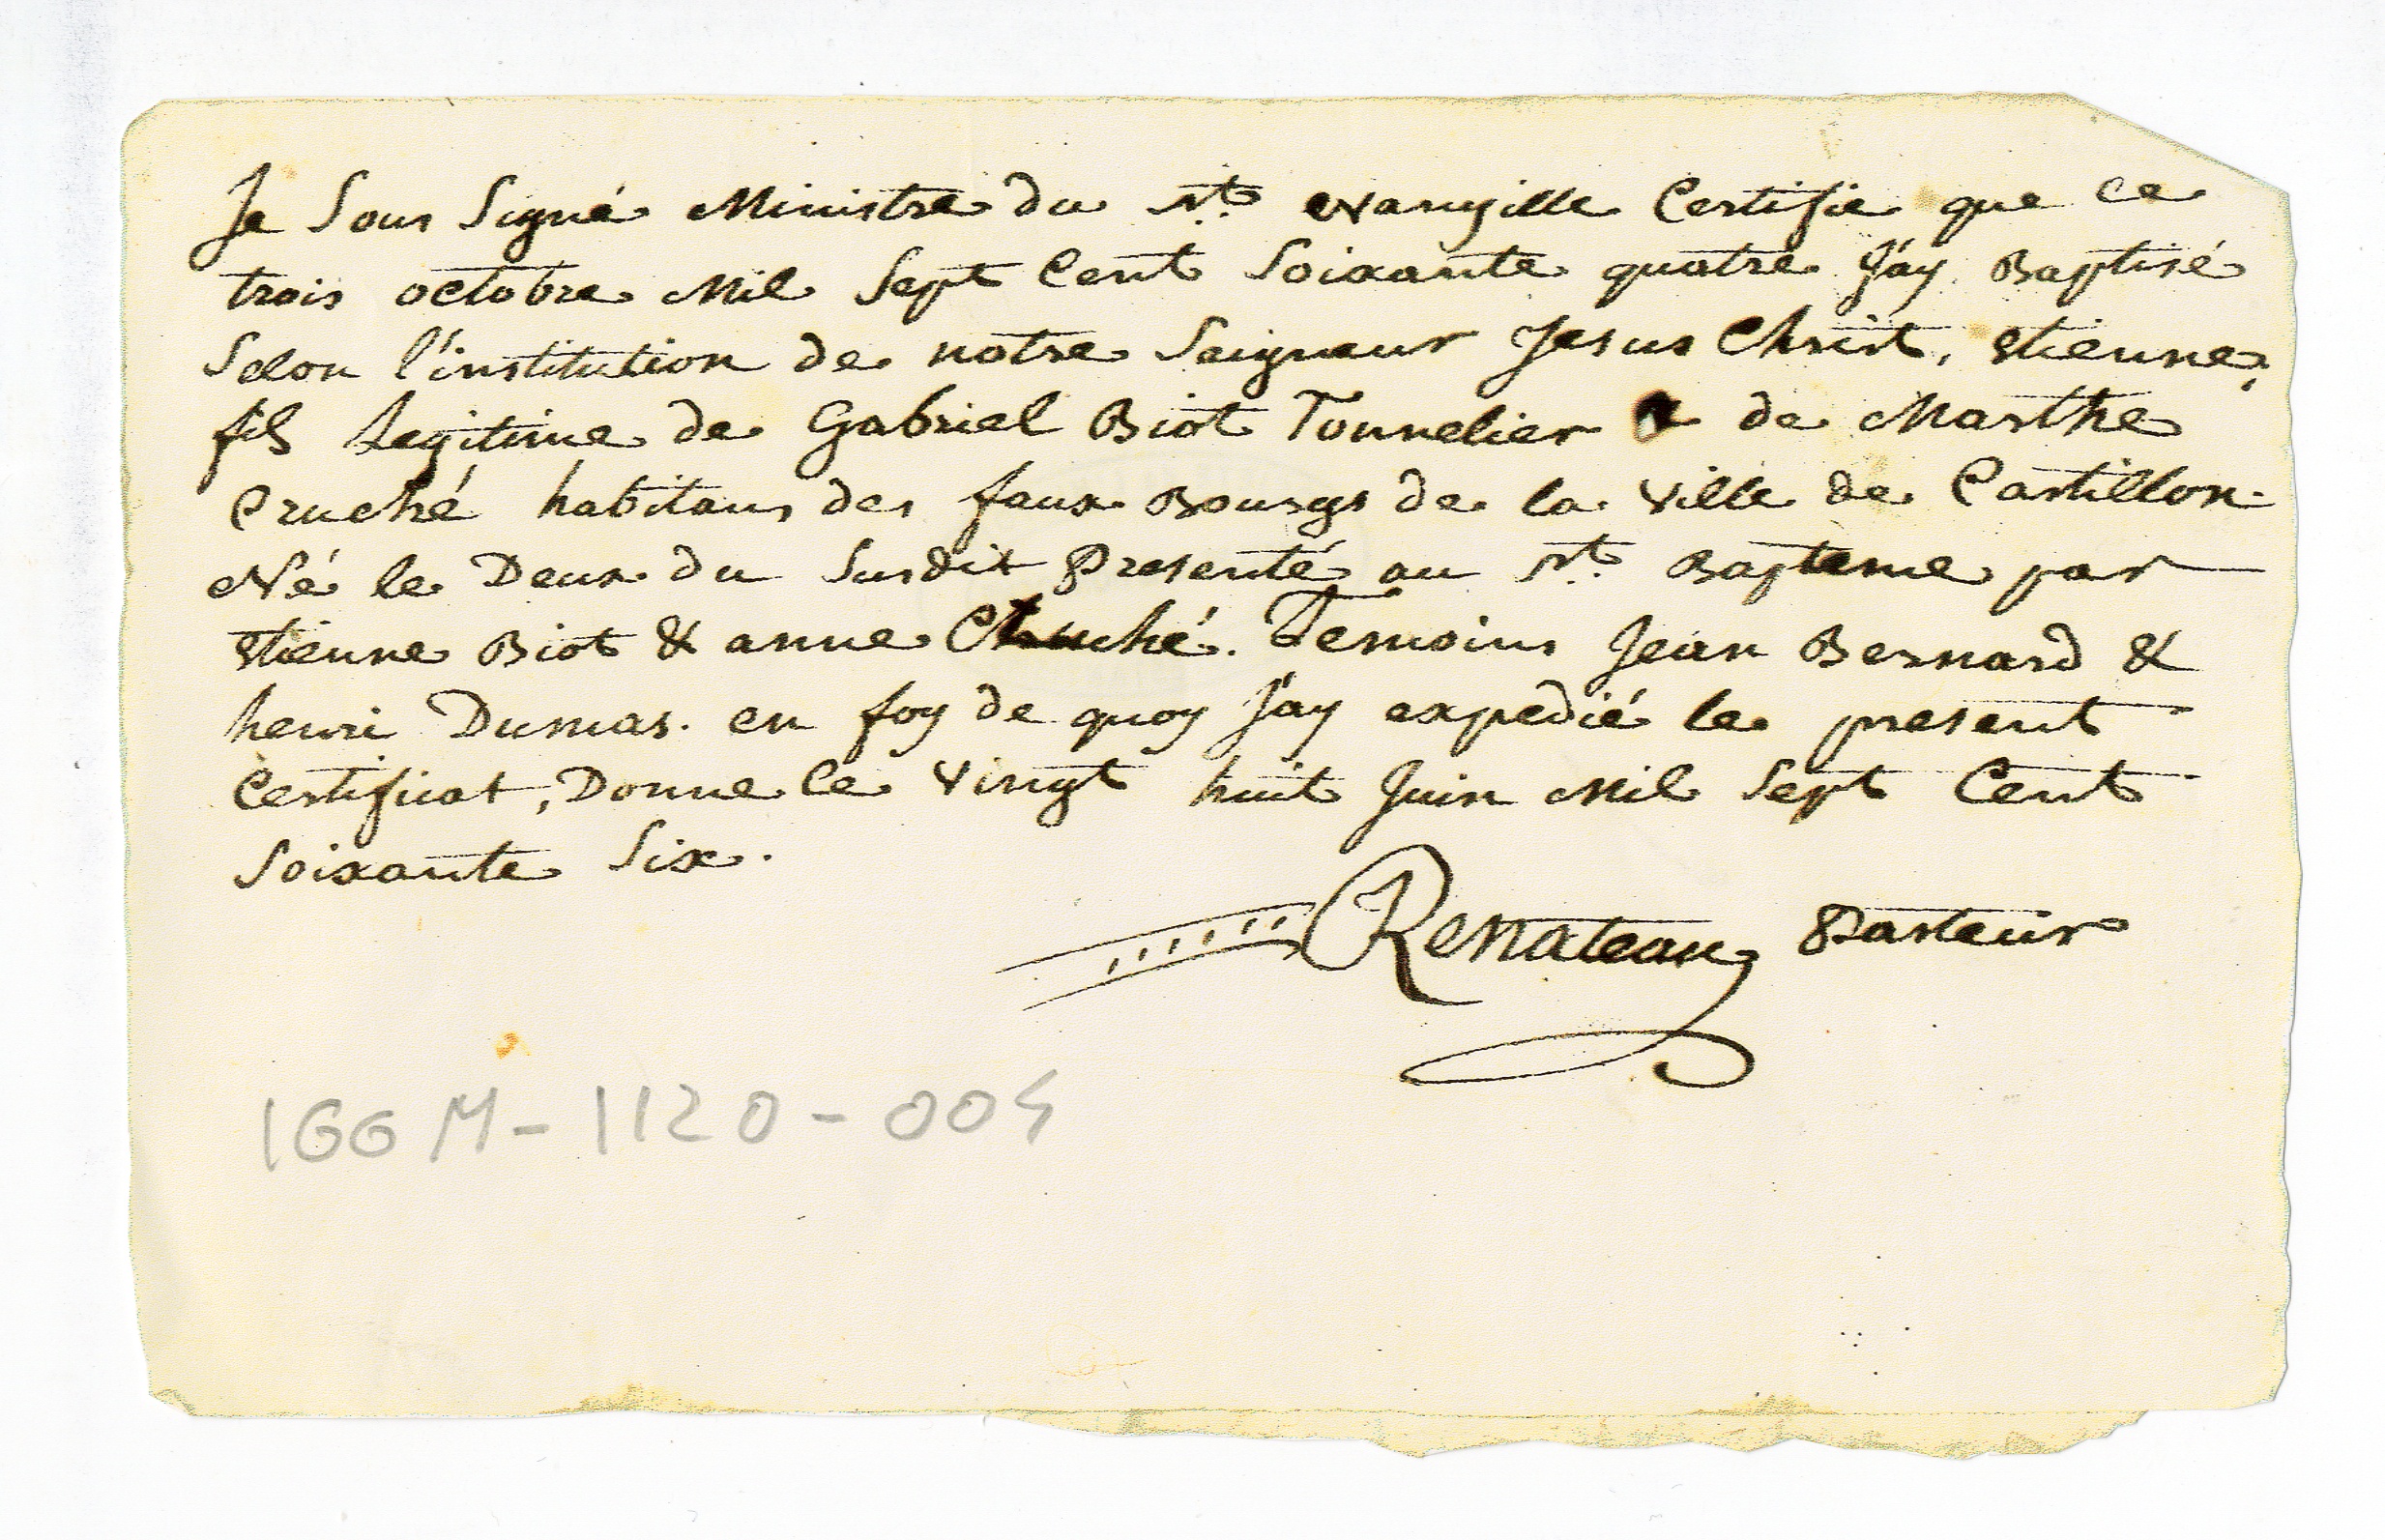 Je Sous Signé Ministre du St. evangille Certifie que ce
trois octobre Mil Sept Cent Soixante quatre J'ay Baptisé
Selon l'institution de notre Seigneur Jesus Christ, etienne,
fils Legitime de Gabriel Biot Tonnelier & de Marthe
Cruché habitans des faux Bourgs de la Ville de Castillon
Né le Deux du Susdit Presenté au St. Bapteme par
etienne Biot & anne Cruché. Temoins Jean Bernard &
henri Dumas. en foy de quoy J'ay expedié le present
Certificat, Donne le Vingt huit Juin Mil Sept Cent
Soixante Six.
Renateau Pasteur
166 M-1120-004